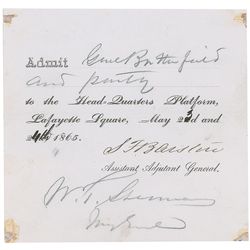 Admit Genl Butterfield
and party
to the Head-Quarters Platform,
Lafayette Square, May 23d and
24th 1865.
Assistant Adjutant General.
W. T. Sherman
Maj Genl